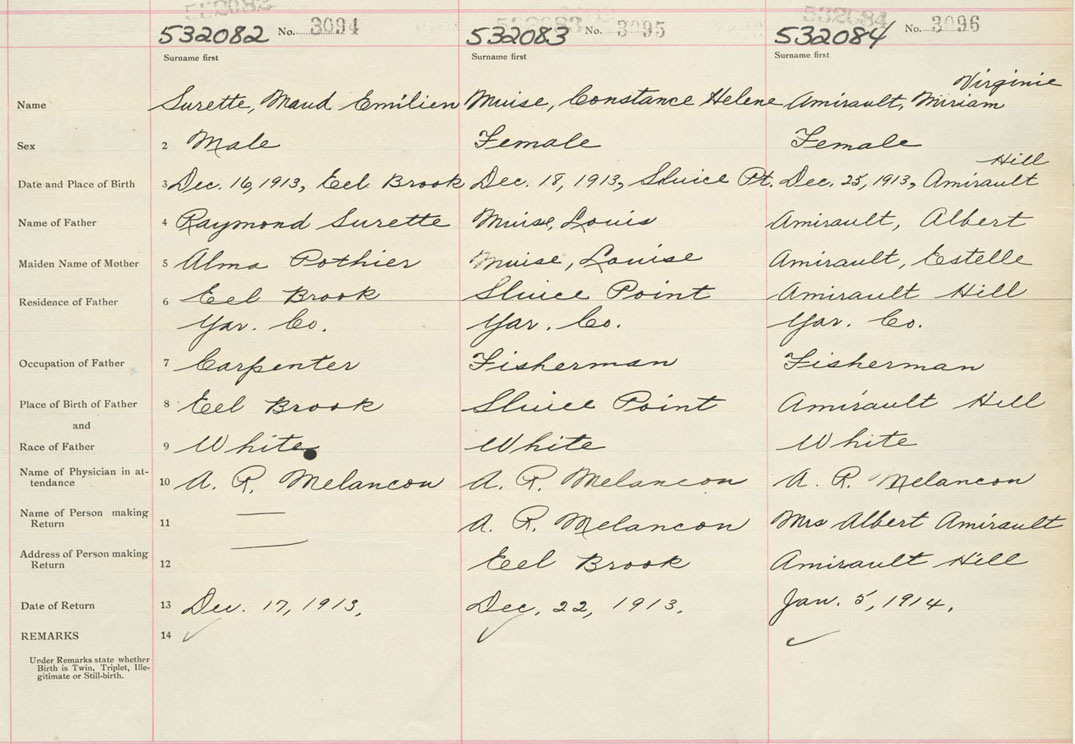 532082 No. 3094 532083 No. 3095 532084 No. 3096
Surname first Surname first Surname first
Virginie
Name Surette, Maud Emilien Muise, Constance Helene Amirault, Miriam
Sex 2 Male Female Female
Hill
Date and Place of Birth 3 Dec. 16, 1913, Eel Brook Dec. 18, 1913, Sluice Pt. Dec. 25, 1913, Amirault
Name of Father 4 Raymond Surette Muise, Louis Amirault, Albert
Maiden Name of Mother 5 Alma Pothier Muise, Louise Amirault, Estelle
Residence of Father 6 Eel Brook Sluice Point Amirault Hill
Yar. Co. Yar. Co. Yar. Co.
Occupation of Father 7 Carpenter Fisherman Fisherman
Place of Birth of Father 8 Eel Brook Sluice Point Amirault Hill
and
Race of Father 9 White White White
Name of Physician in at-
tendance 10 A. R. Melancon A. R. Melancon A. R. Melancon
Name of Person making
Return 11 — A. R. Melancon Mrs Albert Amirault
Address of Person making
Return 12 — Eel Brook Amirault Hill
Date of Return 13 Dec. 17, 1913. Dec. 22, 1913. Jan. 5, 1914.
REMARKS 14 ✓ ✓ ✓
Under Remarks state whether
Birth is Twin, Triplet, Ille-
gitimate or Still-birth.